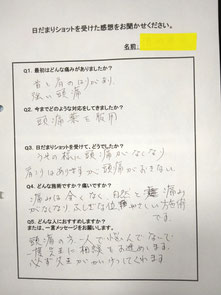 日だまりショットを受けた感想をお聞かせください。
名前:
Q1. 最初はどんな痛みがありましたか?
首と肩のはりがあり、
強い頭痛
Q2. 今までどのような対応をしてきましたか?
頭痛薬を服用
Q3. 日だまりショットを受けて、どうでしたか?
うその様に頭痛がなくなり
肩はりはありますが頭痛がおきない
Q4. どんな施術ですか?痛いですか?
痛みは全くなく 自然と 痛み
がなくなり、ふしぎな位 やさしい方法
です。
Q5. どんな人におすすめしますか?
または、一言メッセージをお願いします。
頭痛の方一人で悩んでないで
度 先生に相談をお進めします。
必ず先生がかい決してくれます